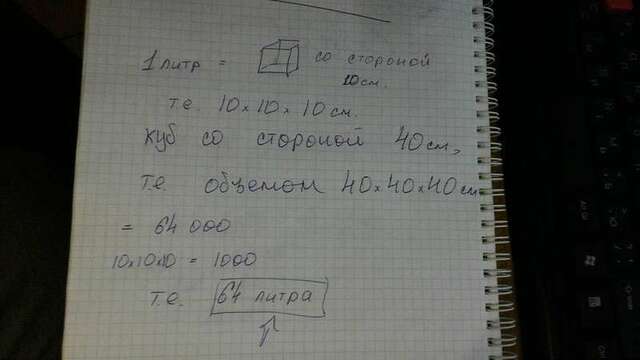 1 литр = со стороной
10 см.
т.е. 10 x 10 x 10 см.
куб со стороной 40 см,
т.е объемом 40 x 40 x 40 см
= 64 000
10x10x10 = 1000
т.е. 64 литра